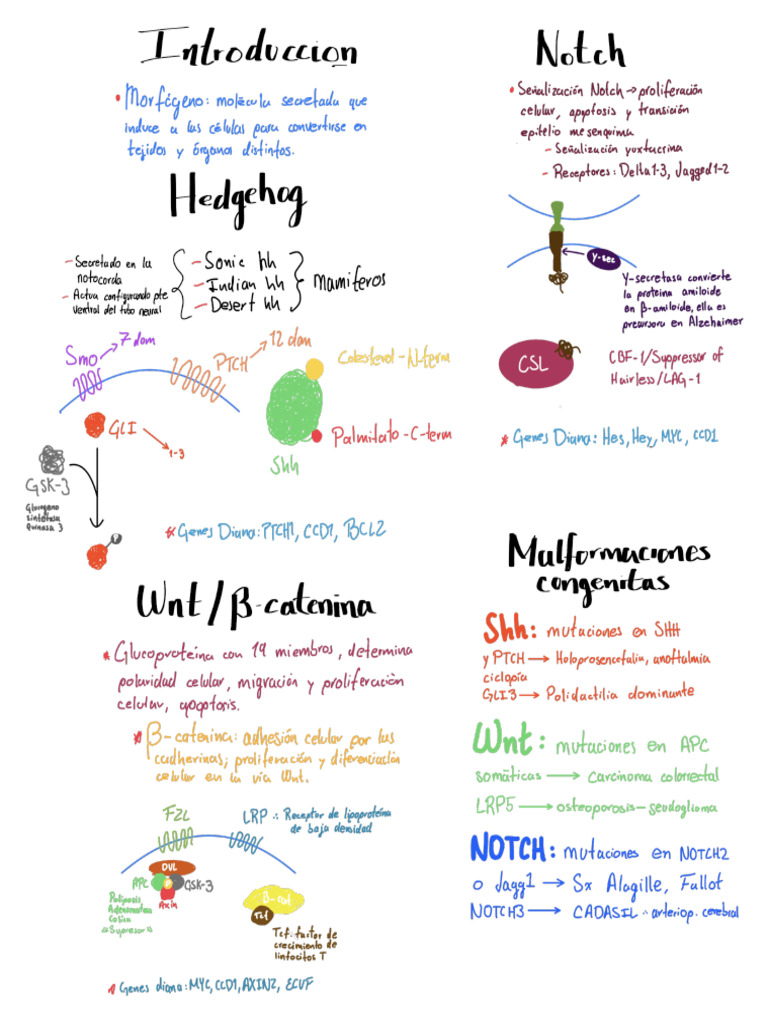 Introduccion
• Morfógeno: molécula secretada que
induce a las células para convertirse en
tejidos y órganos distintos.
Hedgehog
- Secretado en la
notocorda
- Activa configurando pte
ventral del tubo neural
- Sonic hh
- Indian hh
- Desert hh
Mamiferos
Smo → 7 dom
PTCH → 12 dom
Colesterol-N-term
Palmitato-C-term
Shh
GLI
1-3
GSK-3
Glucogeno
sintetasa
Quinasa 3
P
* Genes Diana: PTCH1, CCD1, BCL2
Wnt/β-catenina
* Glucoproteína con 19 miembros, determina
polaridad celular, migración y proliferación
celular, apoptosis.
* β-catenina: adhesión celular por las
cadherinas; proliferación y diferenciación
celular en la vía Wnt.
FZL
LRP ∴ Receptor de lipoproteína
de baja densidad
DVL
APC
GSK-3
Axin
Poliposis
Adenomatosa
Colica
"Supresor"
β-cat
Tcf
Tcf: factor de
crecimiento de
linfocitos T
* Genes diana: MYC, CCD1, AXIN2, ECVF
Notch
• Señalización Notch → proliferación
celular, apoptosis y transición
epitelio mesenquima
- Señalización yuxtacrina
- Receptores: Delta 1-3, Jagged 1-2
γ-sec
γ-secretasa convierte
la proteína amiloide
en β-amiloide, ella es
precursora en Alzehaimer
CSL
CBF-1/Suppressor of
Hairless/LAG-1
* Genes Diana: Hes, Hey, MYC, CCD1
Malformaciones
congenitas
Shh: mutaciones en SHH
y PTCH → Holoprosencefalia, anoftalmia
ciclopía
GLI3 → Polidactilia dominante
Wnt: mutaciones en APC
somáticas → Carcinoma colorrectal
LRP5 → osteoporosis-seudoglioma
NOTCH: mutaciones en NOTCH2
o Jagg1 → Sx Alagille, Fallot
NOTCH3 → CADASIL ∴ arteriop. cerebral